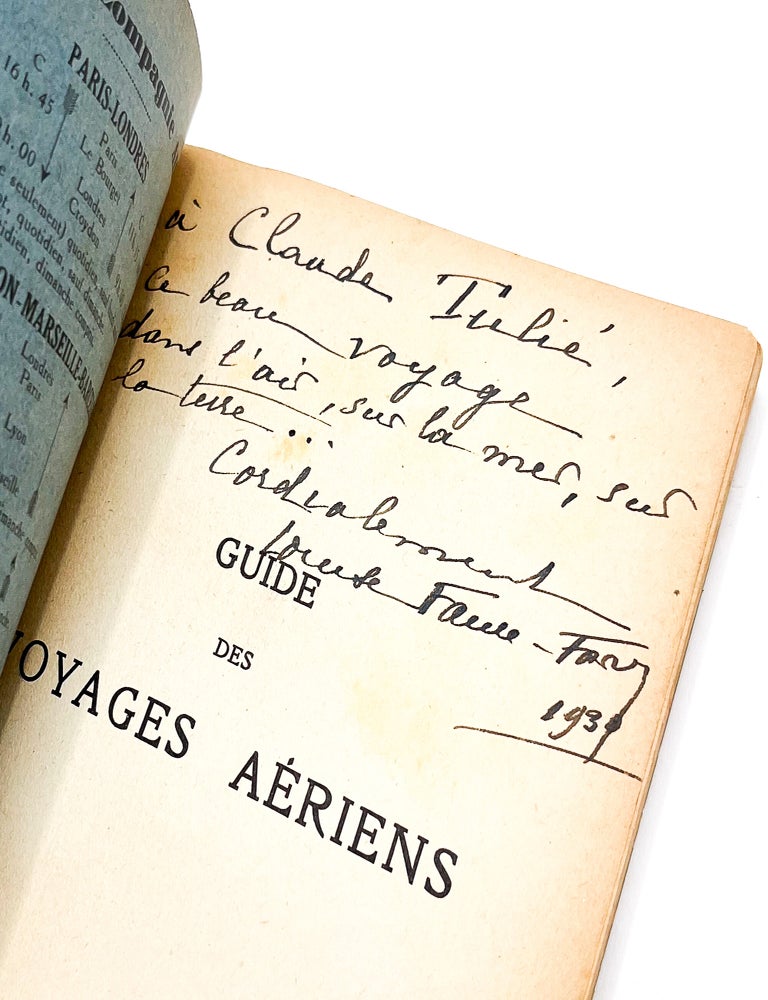 Compagnie
C
PARIS-LONDRES
16 h. 45
Paris
Le Bourget
h. 00
Londres
Croydon
seulement) quotidien
quotidien, sauf dimanche
dimanche
ON-MARSEILLE
Londres
Paris
Lyon
à Claude Tulié,
ce beau voyage
dans l'air, sur la mer, sur
la terre...
Cordialement
Louise Faure-Favier
GUIDE
DES
VOYAGES AÉRIENS